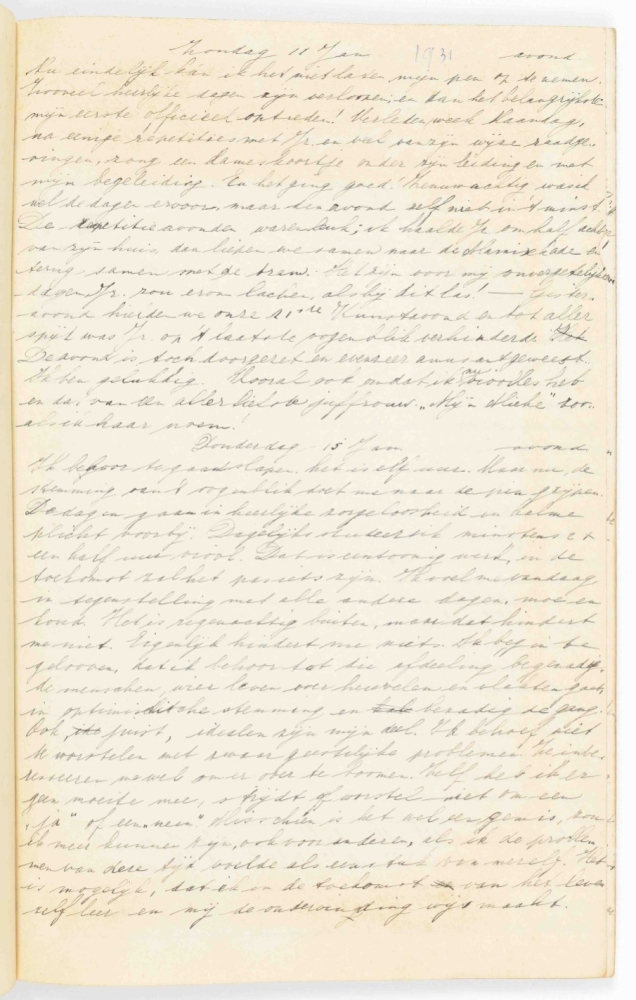 Zondag 11 Jan 1931 avond
Nu eindelijk kan ik het niet laten mijn pen op te nemen.
Zooveel heerlijke dagen zijn verloopen, en dan het belangrijkste:
mijn eerste officieel optreden! Verleden week Maandag,
na eenige repetities met Jr. en veel van zijn wijze raadge-
vingen, zong een dameskoortje onder zijn leiding en met
mijn begeleiding. En het ging goed! Zenuwachtig was ik
wel de dagen ervoor, maar den avond zelf niet in 't minst.
De repetitieavonden waren leuk; ik haalde Jr. om half acht
van zijn huis, dan liepen we samen naar de en
terug samen met de tram. Het zijn voor mij onvergetelijke
dagen, Jr. zou erom lachen, als hij dit las! — Gister-
avond hielden we onze Kunstavond en tot aller
spijt was Jr. op 't laatste oogenblik verhinderd.
De avond is toch doorgezet en evenzeer amusant geweest.
Ik ben gelukkig. Vooral ook omdat ik vioolles heb
en das van een allerliefste juffrouw. „Mijn Mieke" zoo-
als ik haar noem!
Donderdag 15 Jan. avond
Ik behoor te gaan slapen, het is elf uur. Maar nu, de
stemming van 't oogenblik doet me naar de pen grijpen.
De dagen gaan in heerlijke zorgeloosheid en kalme
plicht voorbij. Dagelijks studeer ik minstens
een half uur viool. Dat is eentoonig werk, in de
toekomst zal het pas iets zijn. Ik voel me vandaag
in tegenstelling met alle andere dagen, moe en
koud. Het is regenachtig buiten, maar dat hindert
me niet. Eigenlijk hindert me niets. Ik begin te
gelooven, dat ik behoor tot die afdeeling begenadig-
de menschen, wier leven over heuvelen en vlakten gaat
in optimistische stemming en bezadigde gang.
Ook, juist, idealen zijn mijn deel. Ik behoef niet
te worstelen met zware geestelijke problemen. Ze inte-
resseeren me wel om er over te boomen. Zelf heb ik er
geen moeite mee, strijdt of worstel niet om een
„ja" of een „neen". Misschien is het wel een gemis, zou
ik meer kunnen zijn, ook voor anderen, als ik de proble-
men van deze tijd voelde als een stuk van mezelf. Het
is mogelijk, dat ik in de toekomst van het leven
zelf leer en mij de ondervinding wijs maakt.